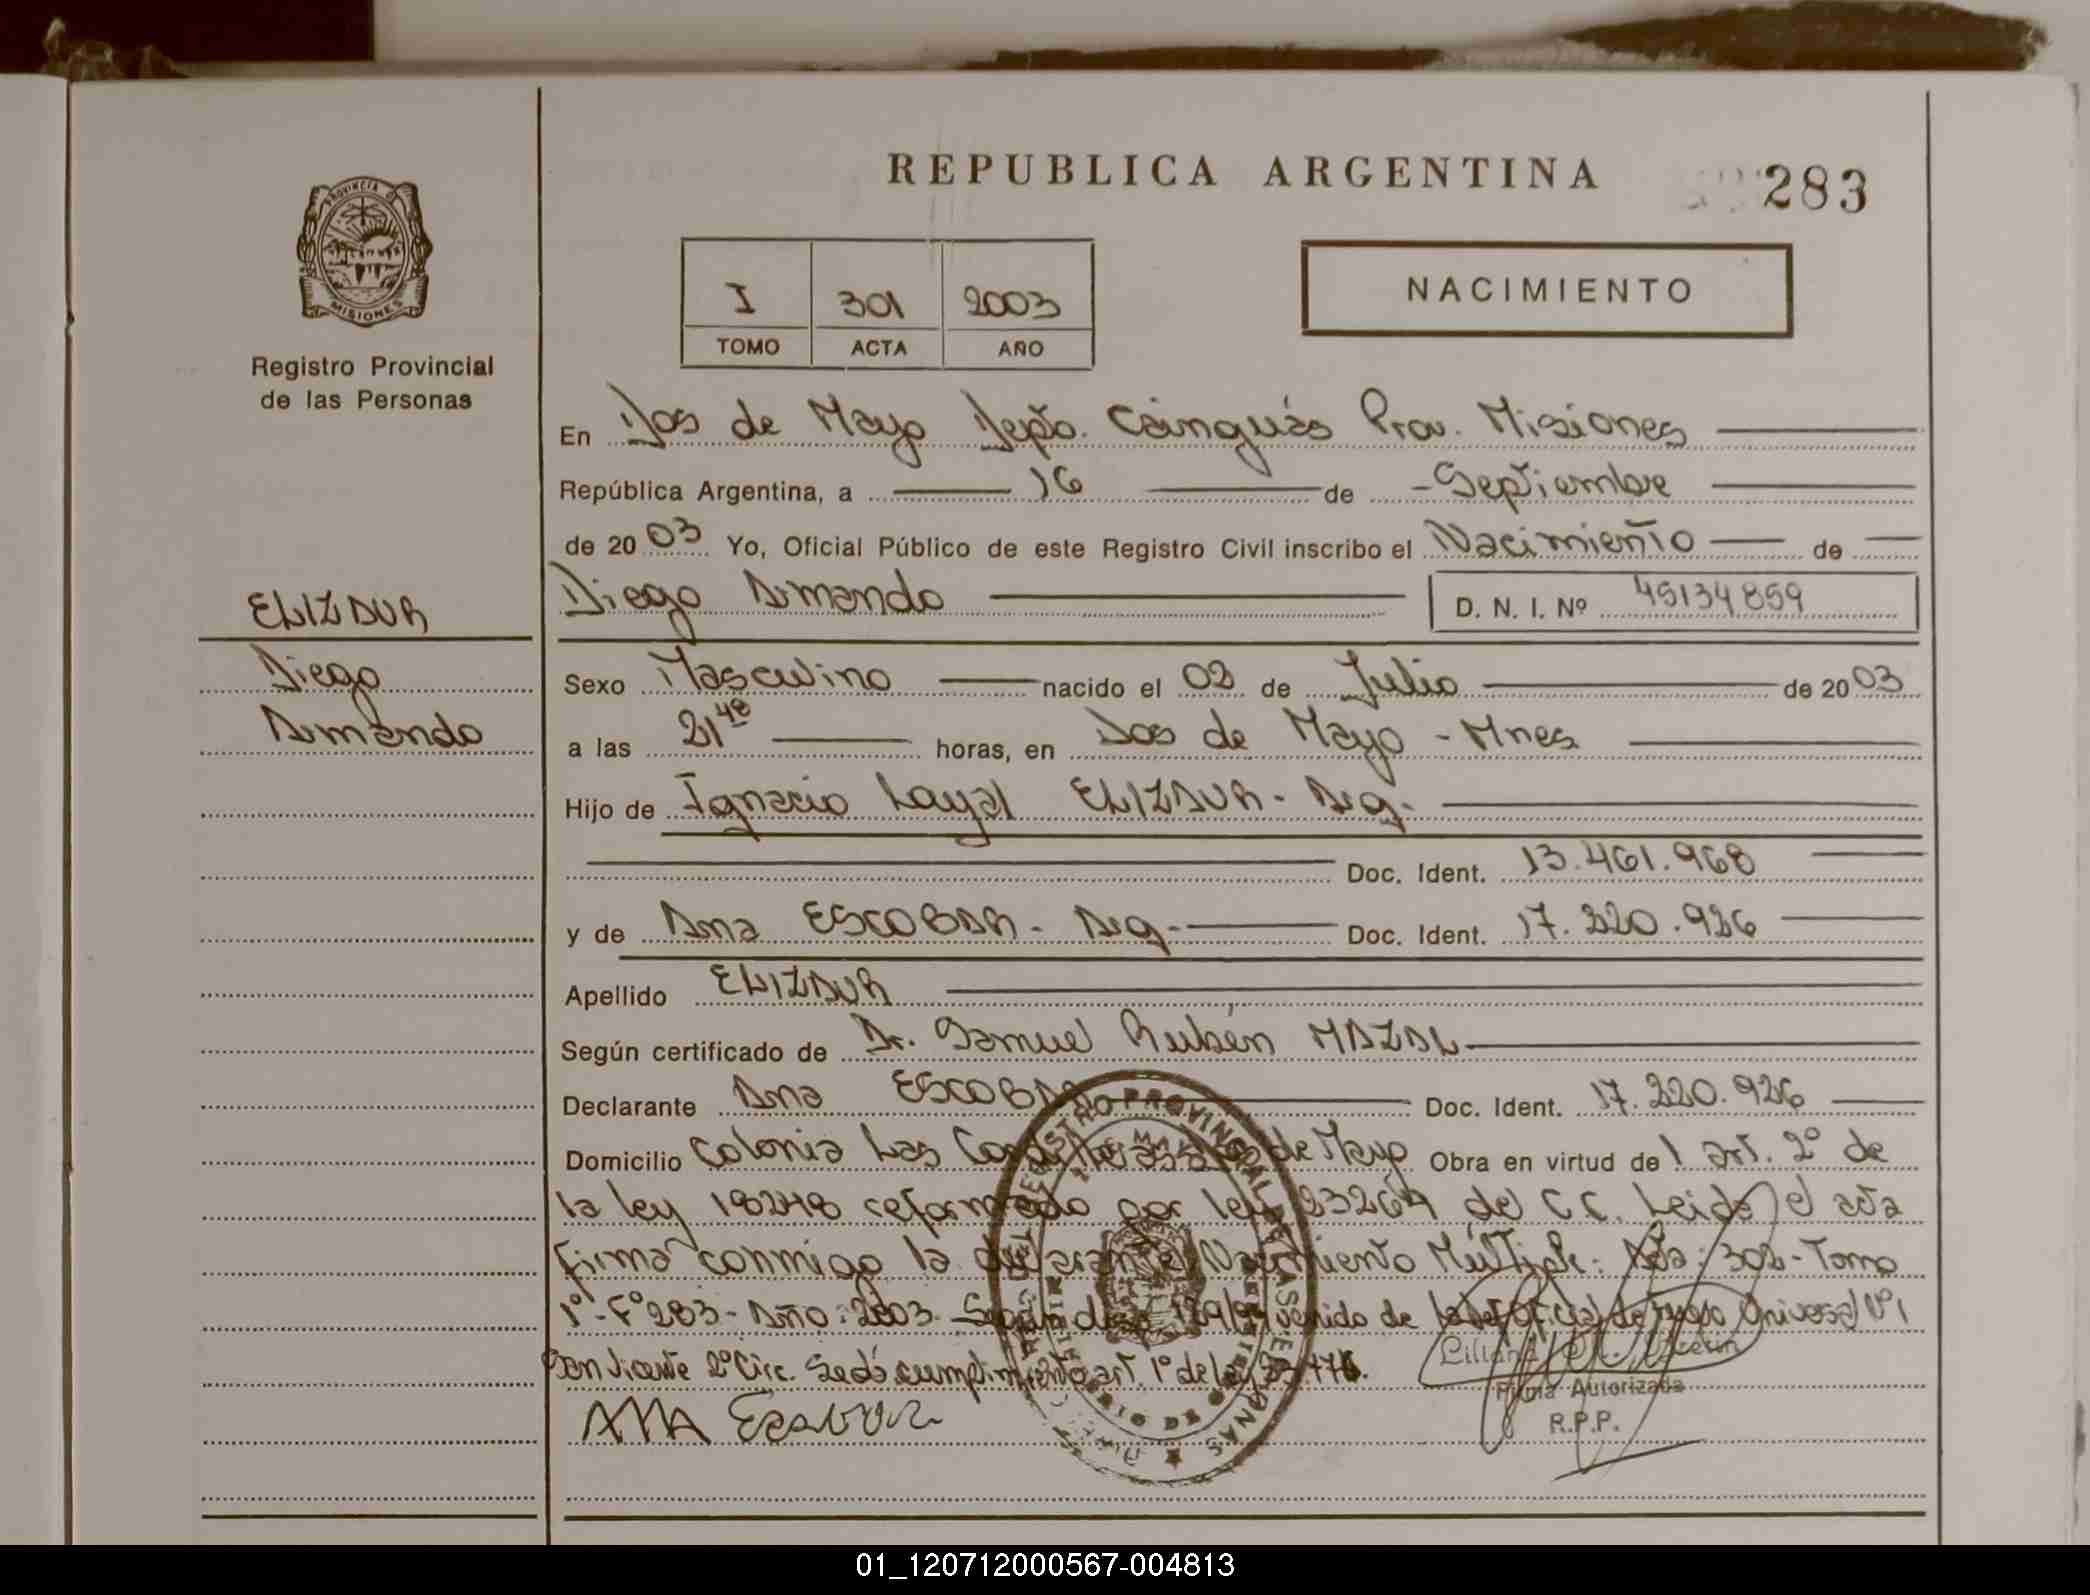 REPUBLICA ARGENTINA
283
PROVINCIA DE
MISIONES
Registro Provincial
de las Personas
I 301 2003
TOMO ACTA AÑO
NACIMIENTO
En Dos de Mayo Depto. Cainguás Prov. Misiones
República Argentina, a 16 de Septiembre
de 2003 Yo, Oficial Público de este Registro Civil inscribo el Nacimiento de
ELIZAUR
Diego Armando D. N. I. Nº 45134859
Diego
Armando
Sexo Masculino nacido el 02 de Julio de 2003
a las 21 48 horas, en Dos de Mayo - Mnes
Hijo de Ignacio Layal ELIZAUR - Arg.
Doc. Ident. 13.461.968
y de Ana ESCOBAR - Arg. Doc. Ident. 17.220.926
Apellido ELIZAUR
Según certificado de Dr. Samuel Rubén MAZAL
Declarante Ana ESCOBAR Doc. Ident. 17.220.926
Domicilio Colonia Las de Mayo Obra en virtud del art. 2° de
la ley 18248 reformado por ley 23264 del C.C. Leida el acta
firma conmigo la declarante Nacimiento Múltiple: Acta: 302 - Tomo
1° - F° 283 - Año: 2003. venido de
San Vicente 2° Circ. Se dá cumplimiento art. 1° de ley
Firma Autorizada
R.P.P.
ANA Escobar
01_120712000567-004813